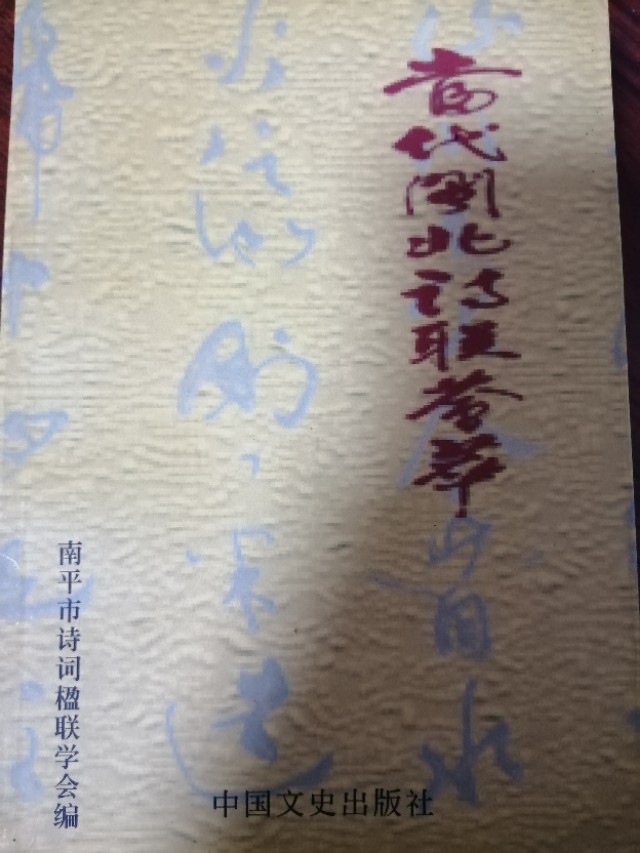 当代闽北诗联荟萃
南平市诗词楹联学会编
中国文史出版社